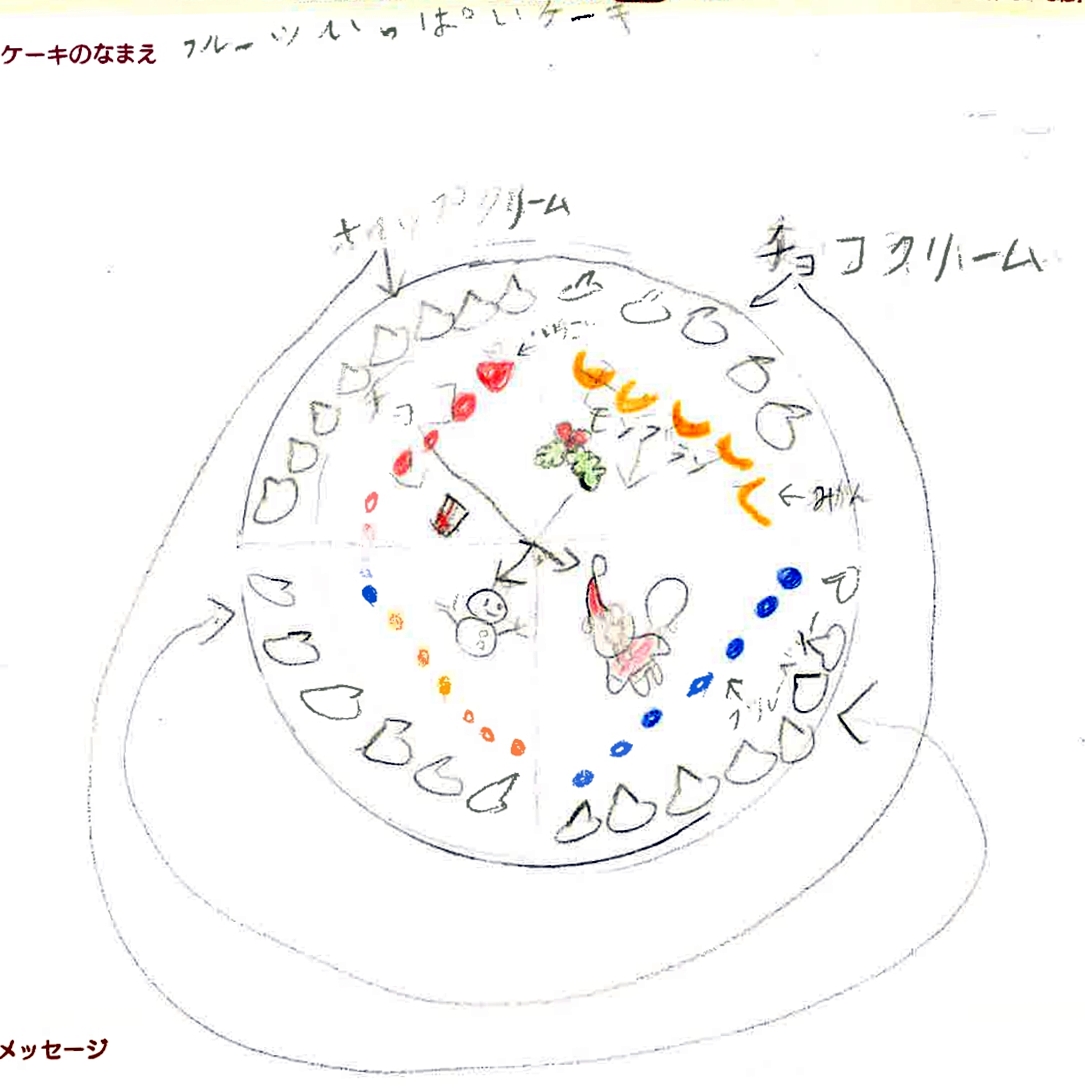 フルーツいっぱいケーキ
ケーキのなまえ
ホイップクリーム
チョコクリーム
いちご
チョコ
みかん
メッセージ